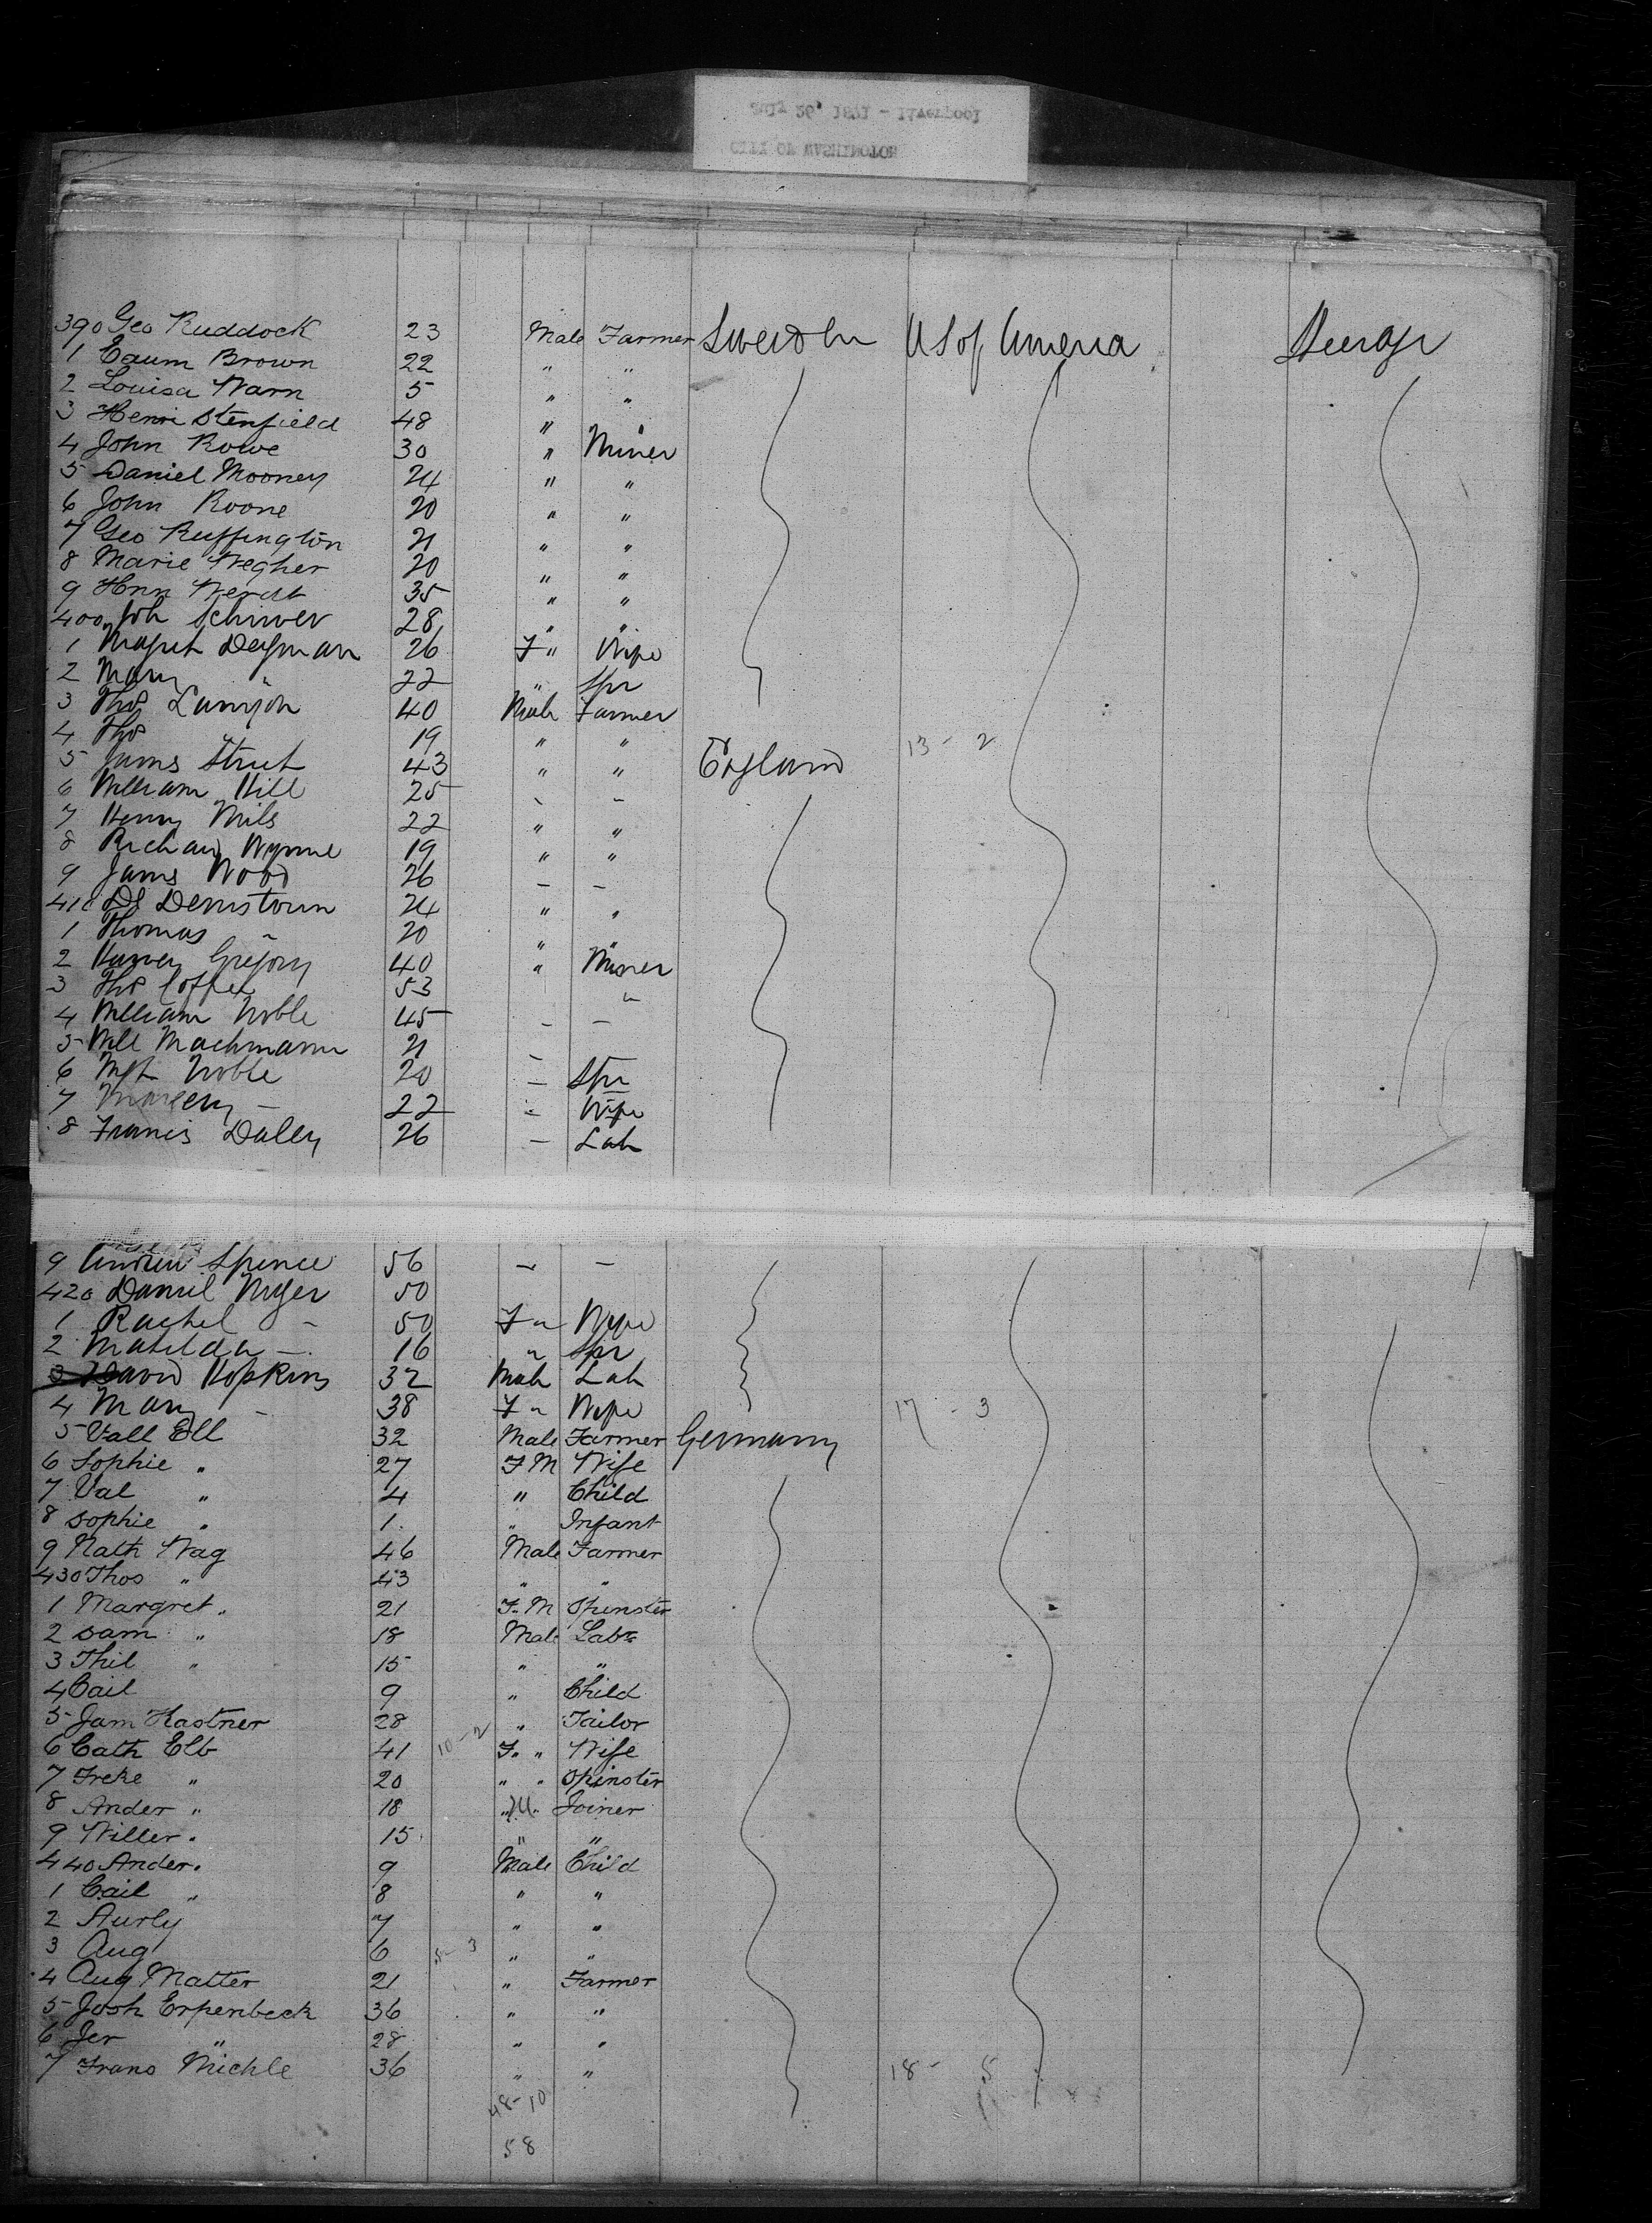 July 26, 1871 - Liverpool
CITY OF WASHINGTON
390 Geo Ruddock 23 Male Farmer Sweden US of America Steerage
1 Eaum Brown 22 " "
2 Louisa Warn 5 " "
3 Henri Stenfield 48 " "
4 John Rowe 30 " Miner
5 Daniel Mooney 24 " "
6 John Roone 20 " "
7 Geo Ruffington 21 " "
8 Marie Wegher 20 " "
9 Hnn Werdt 35 " "
400 Joh Schriver 28 " "
1 Magret Degman 26 F " Wife
2 Mary " 22 " Spr
3 Thos Lanyon 40 Male Farmer
4 Thos " 19 " "
5 James Strut 43 " " England 13 - 2
6 William Hill 25 " "
7 Henry Mils 22 " "
8 Richard Wynne 19 " "
9 James Wood 26 - -
410 Dd Denistoun 24 " "
1 Thomas " 20 " "
2 Harvey Gregory 40 " Miner
3 Thos Coffee 53 "
4 William Noble 45 - -
5 Will Machmann 21 -
6 Mgt Noble 20 - Spr
7 - 22 - Wife
8 Francis Daley 26 - Lab
9 Andrew Spence 56 - -
420 Daniel Myer 50
1 Rachel - 50 F " Wife
2 Matilda - 16 " Spr
3 David Hopkins 32 Male Lab
4 Mary - 38 F " Wife 17 - 3
5 Vall Ell 32 Male Farmer Germany
6 Sophie " 27 F M Wife
7 Val " 4 " Child
8 Sophie " 1 " Infant
9 Nath Wag 46 Male Farmer
430 Thos " 43 " "
1 Margret " 21 F. M Spinster
2 Sam " 18 Male Labr
3 Thil " 15 " "
4 Cail 9 " Child
5 Jam Kastner 28 " Tailor
6 Cath Elb 41 10 - 2 F. " Wife
7 Freke " 20 " " Spinster
8 Ander " 18 " M " Joiner
9 Willer " 15 " "
440 Ander " 9 Male Child
1 Cail " 8 " "
2 Aurly 7 " "
3 Aug 6 5 - 3 " "
4 Aug Matter 21 " Farmer
5 Josh Erpenbeck 36 " "
6 Jer " 28 " "
7 Frans Michle 36 " " 18 - 5
48 - 10
58